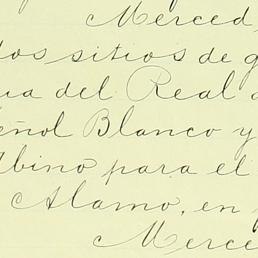 Merced,
dos sitios de g
ua del Real
eñol Blanco y
lbino para el
Alamo, en
Merce